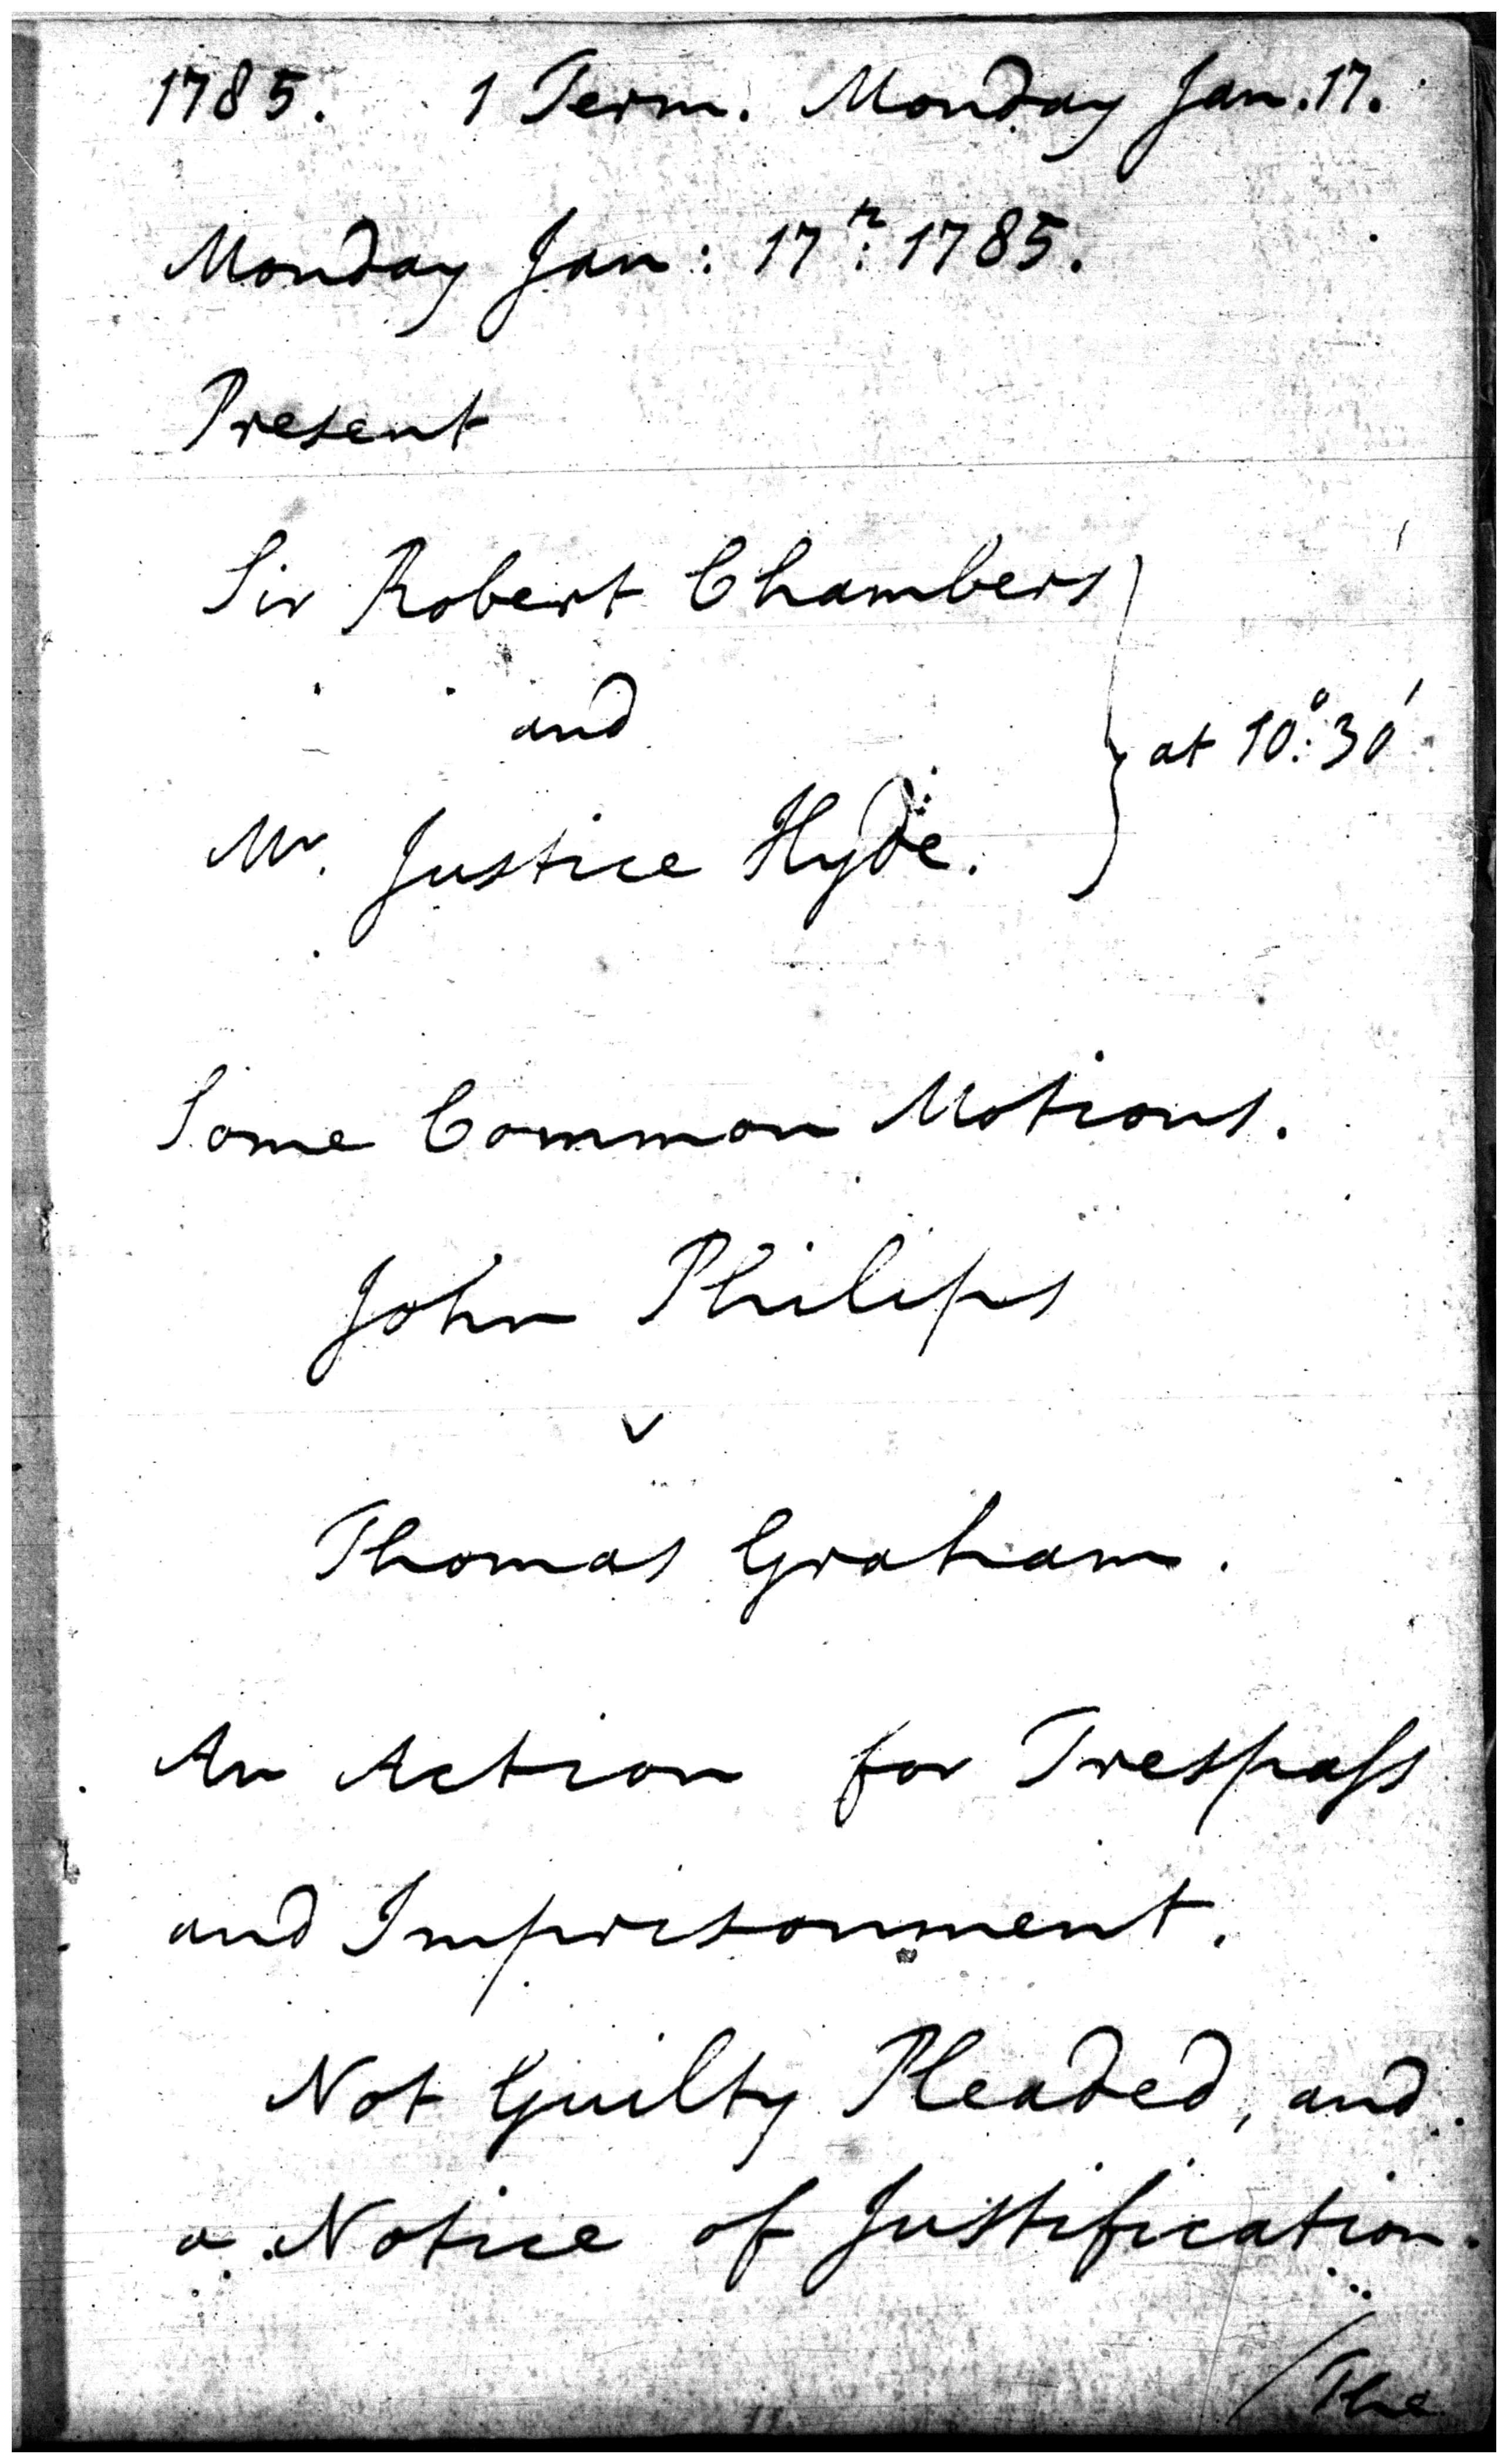 1785. 1 Term. Monday Jan. 17.
Monday Jan: 17th: 1785.
Present
Sir Robert Chambers
and
at 10°: 30'
Mr. Justice Hyde.
Some Common Motions.
John Philips
v
Thomas Graham.
An Action for Trespaſs
and Imprisonment.
Not Guilty Pleaded, and
a Notice of Justification.
/The